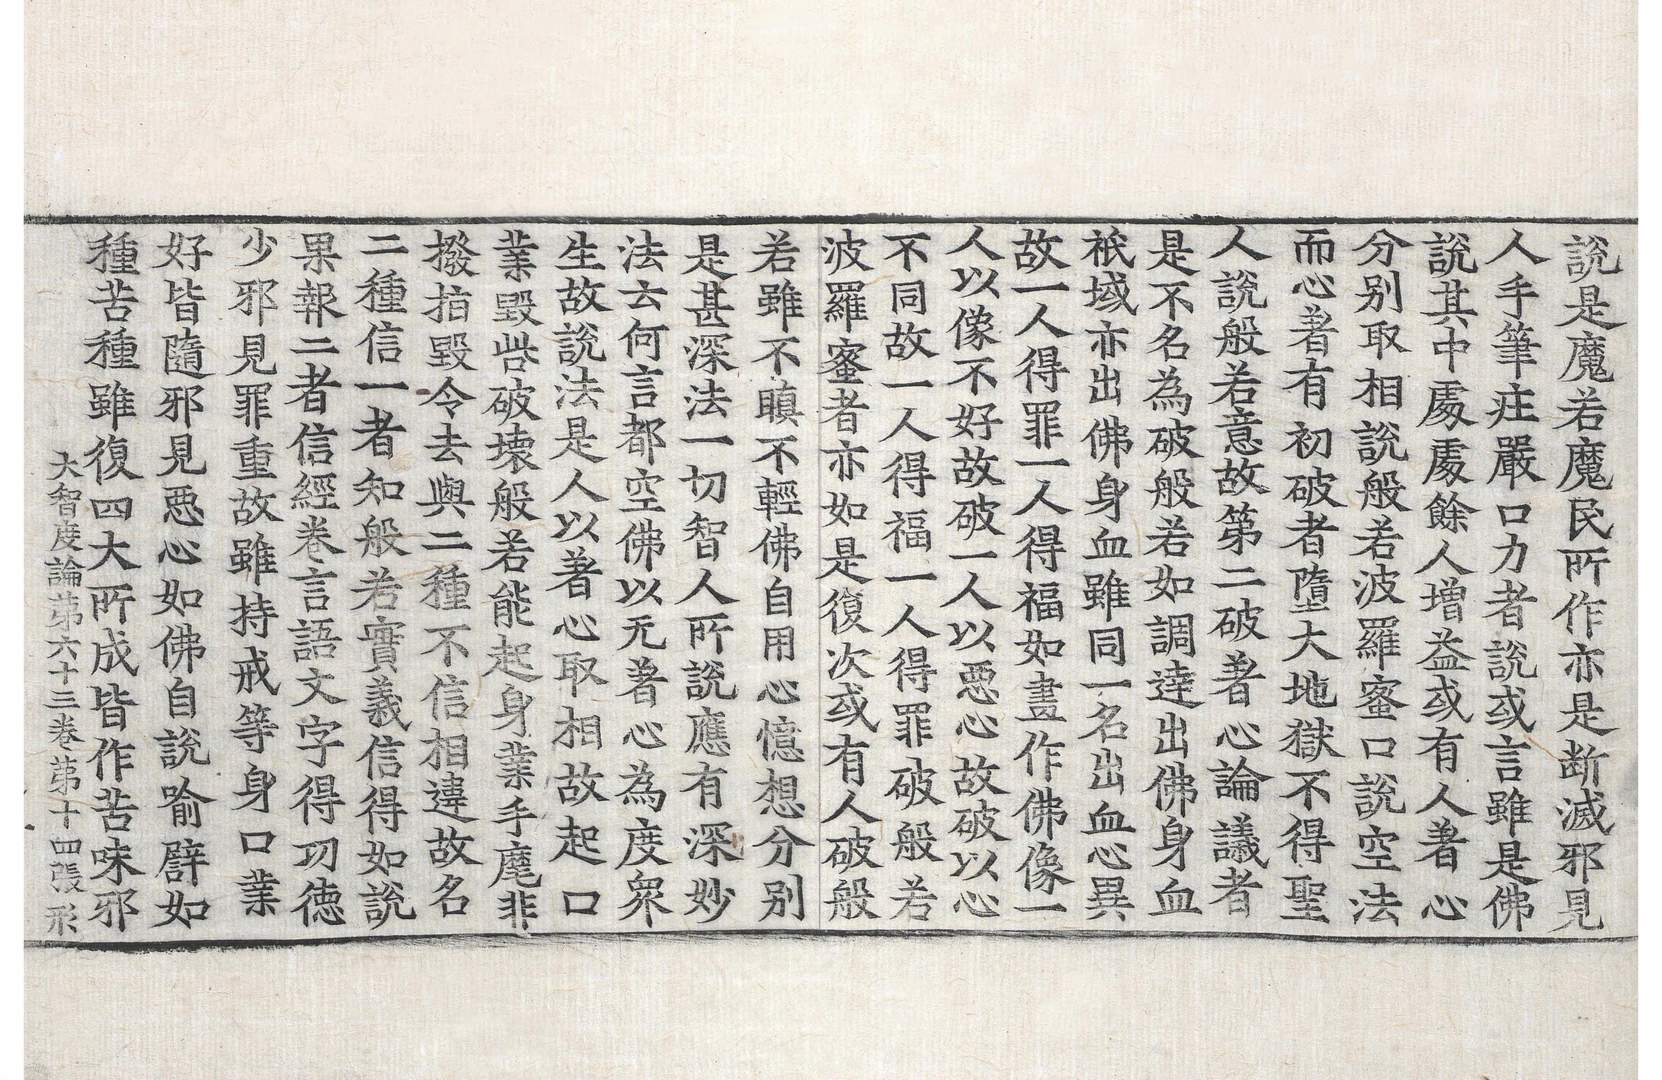 說是魔若魔民所作亦是断滅邪見
人手筆莊嚴口力者說或言雖是佛
說其中䖏䖏餘人增益或有人著心
分別取相說般若波羅蜜口說空法
而心著有初破者墮大地獄不得聖
人說般若意故第二破著心論議者
是不名為破般若如調達出佛身血
祇域亦出佛身血雖同一名出血心異
故一人得罪一人得福如畫作佛像一
人以像不好故破一人以惡心故破以心
不同故一人得福一人得罪破般若
波羅蜜者亦如是復次或有人破般
若雖不瞋不輕佛自用心憶想分別
是甚深法一切智人所說應有深妙
法云何言都空佛以无著心為度衆
生故說法是人以著心取相故起口
業毀呰破壞般若能起身業手麾非
撥指毀令去與二種不信相違故名
二種信一者知般若實義信得如說
果報二者信經卷言語文字得功德
少邪見罪重故雖持戒等身口業
好皆隨邪見惡心如佛自說喻譬如
種苦種雖復四大所成皆作苦味邪
大智度論苐六十三卷苐十四張 形